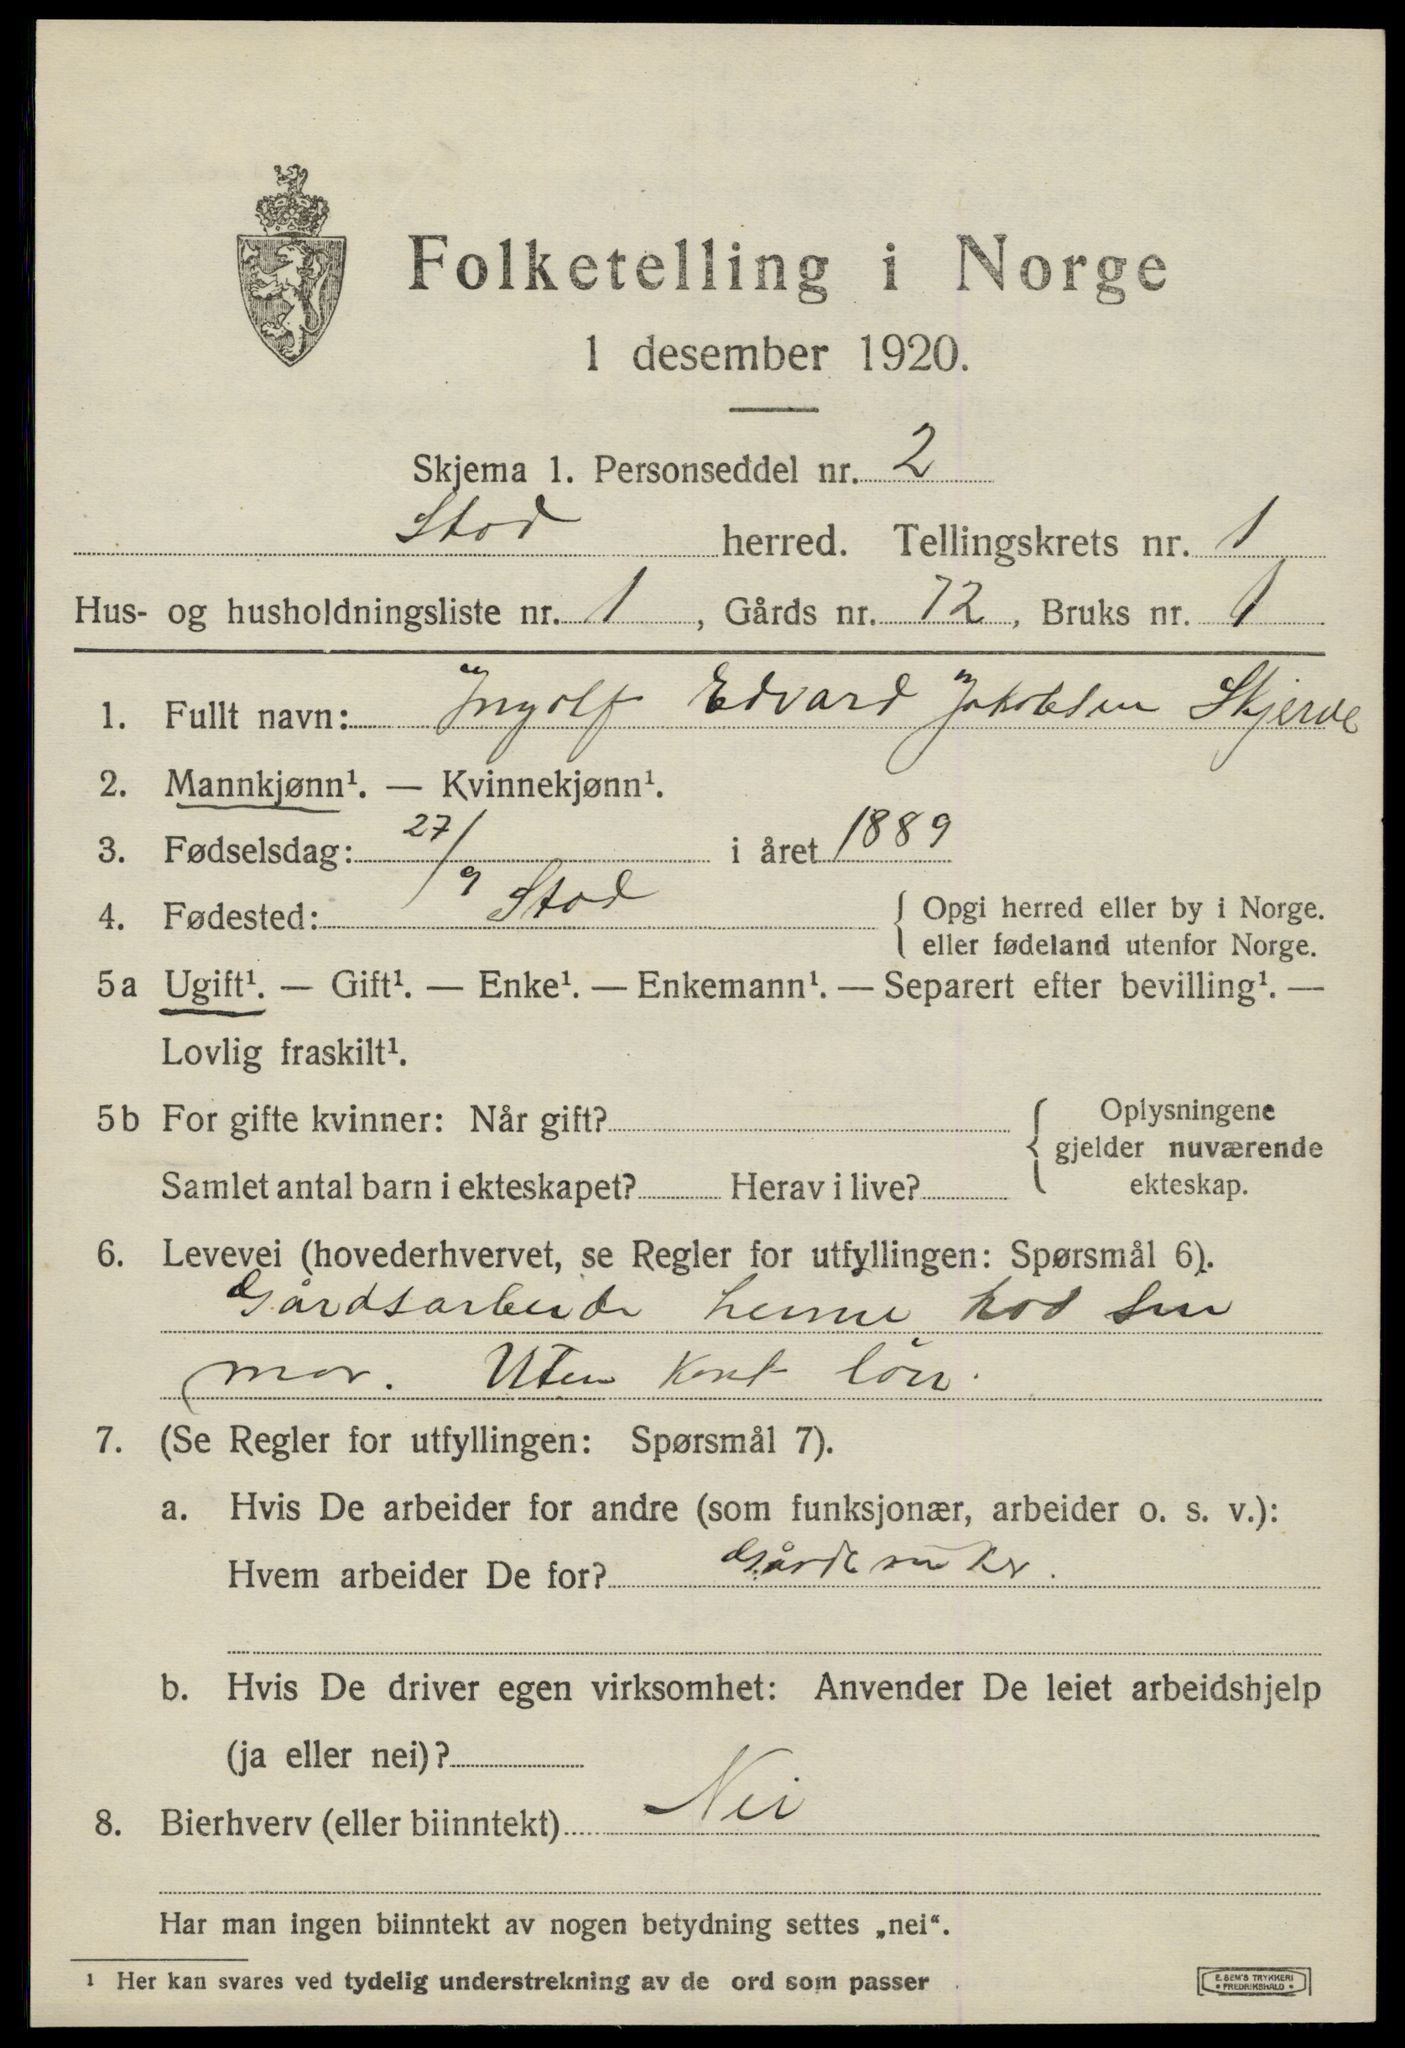 Folketelling i Norge
1 desember 1920.
Skjema 1. Personseddel nr. 2
Stod herred. Tellingskrets nr. 1
Hus- og husholdningsliste nr. 1, Gårds nr. 72, Bruks nr. 1
1. Fullt navn: Ingolf Edvard Jakobsen Skjerve
2. Mannkjønn¹. — Kvinnekjønn¹.
3. Fødselsdag: 27/9 i året 1889
4. Fødested: Stod { Opgi herred eller by i Norge.
eller fødeland utenfor Norge.
5a Ugift¹. — Gift¹. — Enke¹. — Enkemann¹. — Separert efter bevilling¹. —
Lovlig fraskilt¹.
5b For gifte kvinner: Når gift? { Oplysningene
gjelder nuværende
Samlet antal barn i ekteskapet? Herav i live? ekteskap.
6. Levevei (hovederhvervet, se Regler for utfyllingen: Spørsmål 6).
Gårdsarbeide heme hos sin
mor. Uten kont lön.
7. (Se Regler for utfyllingen: Spørsmål 7).
a. Hvis De arbeider for andre (som funksjonær, arbeider o. s. v.):
Hvem arbeider De for?
b. Hvis De driver egen virksomhet: Anvender De leiet arbeidshjelp
(ja eller nei)?
8. Bierhverv (eller biinntekt) Nei
Har man ingen biinntekt av nogen betydning settes „nei“.
¹ Her kan svares ved tydelig understrekning av de ord som passer
E. SEM'S TRYKKERI
• FREDRIKSHALD •